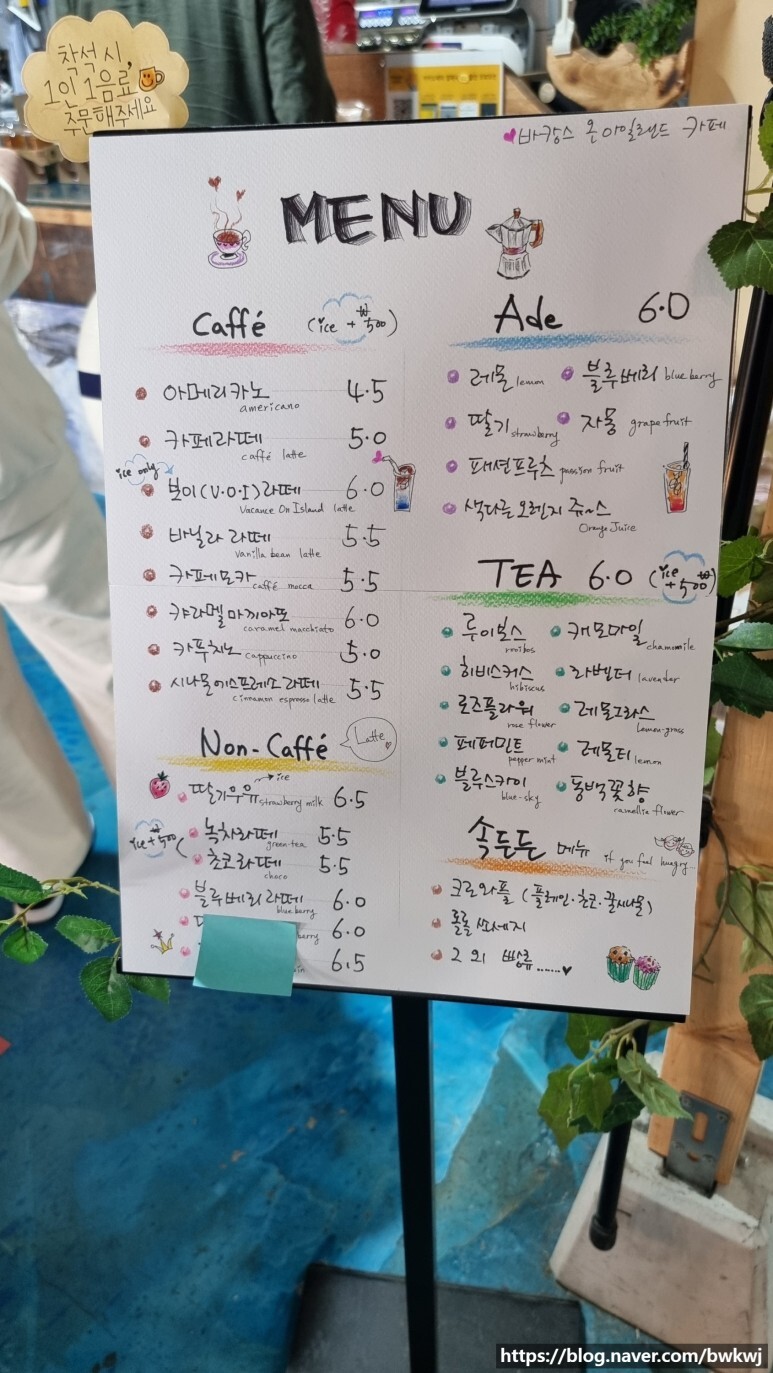 착석 시,
1인 1음료
주문해주세요
바캉스 온 아일랜드 카페
MENU
Caffé (ice + ₩500)
아메리카노 4.5
americano
카페라떼 5.0
caffé latte
ice only
보이(V.O.I)라떼 6.0
Vacance On Island latte
바닐라 라떼 5.5
vanilla bean latte
카페모카 5.5
caffé mocca
캬라멜마끼아또 6.0
caramel macchiato
카푸치노 cappuccino 5.0
시나몬에스프레소라떼 5.5
cinnamon espresso latte
Non-Caffé Latte
ice
딸기우유 strawberry milk 6.5
ice + ₩500
녹차라떼 5.5
green-tea
초코라떼 5.5
choco
블루베리라떼 6.0
blueberry
berry 6.0
6.5
Ade 6.0
레몬 lemon 블루베리 blueberry
딸기 strawberry 자몽 grapefruit
패션프루츠 passion fruit
색다른 오렌지 쥬~스
Orange Juice
TEA 6.0 (ice + ₩500)
루이보스 캐모마일
rooibos chamomile
히비스커스 라벤더 lavender
hibiscus
로즈플라워 레몬그라스
rose flower lemon-grass
페퍼민트 레몬티 lemon
pepper mint
블루스카이 동백꽃향
blue-sky camellia flower
속든든 메뉴 if you feel hungry...
크로와플 (플레인·초코·꿀시나몬)
롤롤 쏘세지
그 외 빵류......♥
https://blog.naver.com/bwkwj